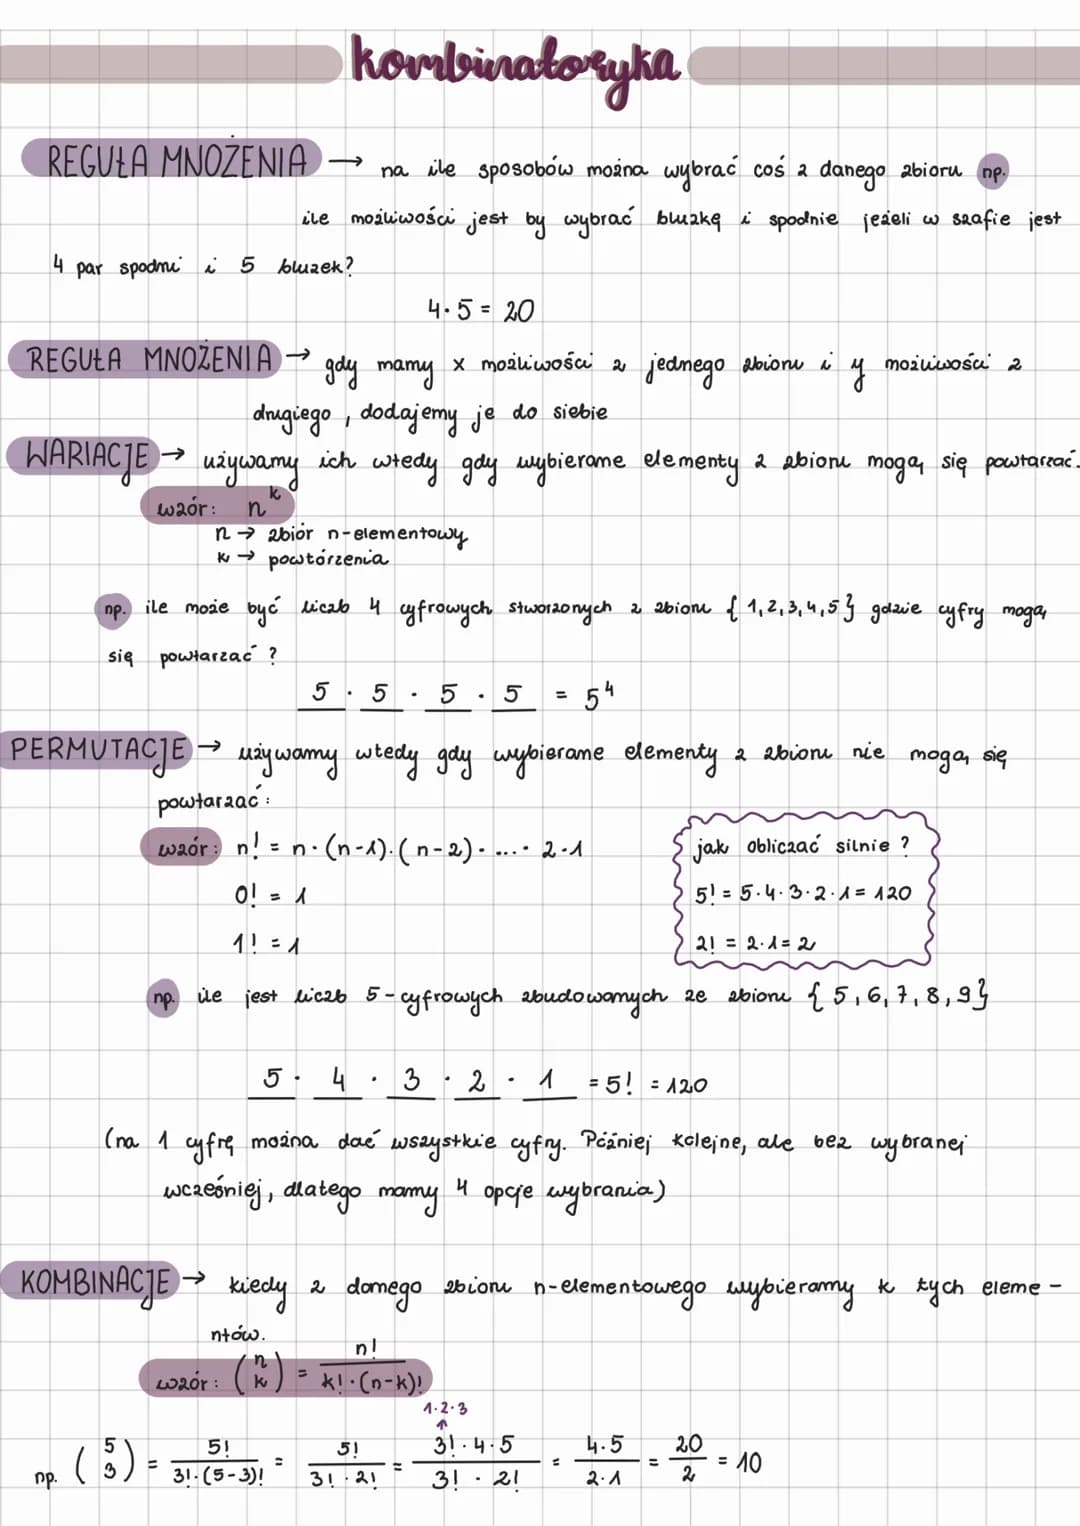 kombinatoryka
REGUŁA MNOŻENIA → na ile sposobów można wybrać coś z danego zbioru np.
ile możliwości jest by wybrać bluzkę i spodnie jeżeli w szafie jest
4 par spodni i 5 bluzek?
4 · 5 = 20
REGUŁA MNOŻENIA → gdy mamy x możliwości z jednego zbioru i y możliwości z
drugiego, dodajemy je do siebie
WARIACJE → używamy ich wtedy gdy wybierane elementy z zbioru mogą się powtarzać.
wzór: n^k
n → zbiór n-elementowy
k → powtórzenia
np. ile może być liczb 4 cyfrowych stworzonych z zbioru {1,2,3,4,5} gdzie cyfry mogą
się powtarzać?
5 · 5 · 5 · 5 = 5^4
PERMUTACJE → używamy wtedy gdy wybierane elementy z zbioru nie mogą się
powtarzać:
wzór: n! = n · (n-1) · (n-2) · ... · 2 · 1
0! = 1
1! = 1
jak obliczać silnie?
5! = 5·4·3·2·1 = 120
2! = 2·1 = 2
np. ile jest liczb 5-cyfrowych zbudowanych ze zbioru {5,6,7,8,9}
5 · 4 · 3 · 2 · 1 = 5! = 120
(na 1 cyfrę można dać wszystkie cyfry. Później kolejne, ale bez wybranej
wcześniej, dlatego mamy 4 opcje wybrania)
KOMBINACJE → kiedy z danego zbioru n-elementowego wybieramy k tych eleme-
ntów.
wzór: (n k) = n! / k!·(n-k)!
1·2·3
↑
np. (5 3) = 5! / 3!·(5-3)! = 5! / 3!·2! = 3!·4·5 / 3!·2! = 4·5 / 2·1 = 20 / 2 = 10